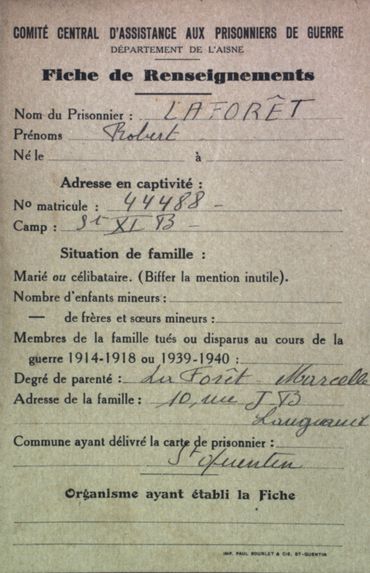 COMITÉ CENTRAL D'ASSISTANCE AUX PRISONNIERS DE GUERRE
DÉPARTEMENT DE L'AISNE
Fiche de Renseignements
Nom du Prisonnier : LAFORÊT
Prénoms Robert
Né le à
Adresse en captivité :
No matricule : 44488 -
Camp : St XI B -
Situation de famille :
Marié ou célibataire. (Biffer la mention inutile).
Nombre d'enfants mineurs :
— de frères et sœurs mineurs :
Membres de la famille tués ou disparus au cours de la
guerre 1914-1918 ou 1939-1940 :
Degré de parenté : La Forêt Marcelle
Adresse de la famille : 10, rue J B
Commune ayant délivré la carte de prisonnier :
St Quentin
Organisme ayant établi la Fiche
IMP. PAUL BOURLET & CIE, ST-QUENTIN